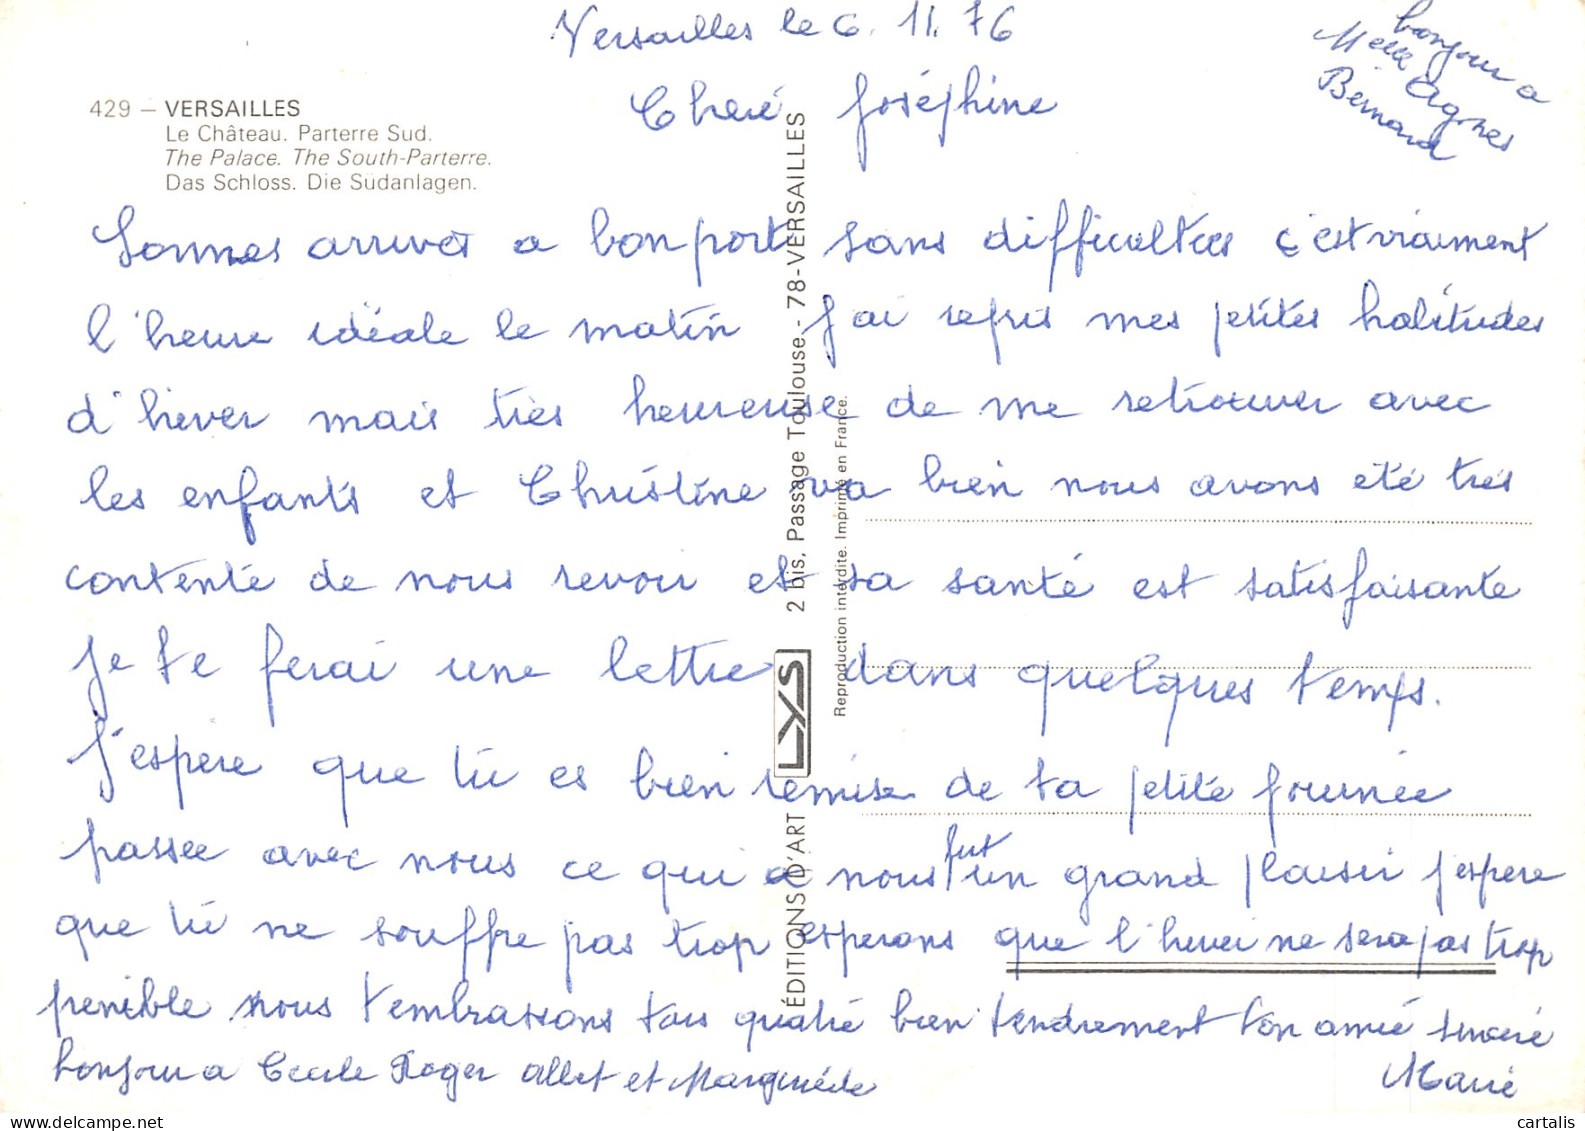 Versailles le 6. 11. 76
bonjour a
Melle Agnes
Bernard
429 – VERSAILLES
Le Château. Parterre Sud.
The Palace. The South-Parterre.
Das Schloss. Die Südanlagen.
Cheré Joséphine
Sommes arrivés a bon port sans difficultées c'est vraiment
l'heure idéale le matin J'ai repris mes petites habitudes
d'hiver mais très heureuse de me retrouver avec
les enfants et Christine va bien nous avons été très
contente de nous revoir et sa santé est satisfaisante
Je te ferai une lettre dans quelques temps.
J'espere que tu es bien remise de ta petite journée
passée avec nous ce qui a nous fut un grand plaisir j'espere
que tu ne souffre pas trop esperons que l'hiver ne sera pas trop
penible nous t'embrassons tous quatre bien tendrement ton amie sincere
bonjour a Cecile Roger Albert et Marguerite
Marie
ÉDITIONS D'ART LYS 2 bis, Passage Toulouse - 78-VERSAILLES
Reproduction interdite. Imprimé en France.
cartalis